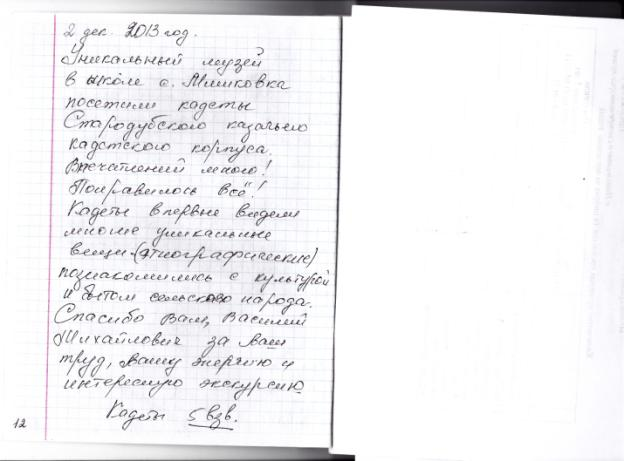 2 дек. 2013 год.
Уникальный музей
в школе с. Мишковка
посетили кадеты
Стародубского казачьего
кадетского корпуса.
Впечатлений много!
Понравилось всё!
Кадеты впервые видели
многие уникальные
вещи (этнографические)
познакомились с культурой
и бытом сельского народа.
Спасибо Вам, Василий
Михайлович за ваш
труд, вашу энергию и
интересную экскурсию
Кадеты 5 взв.
12